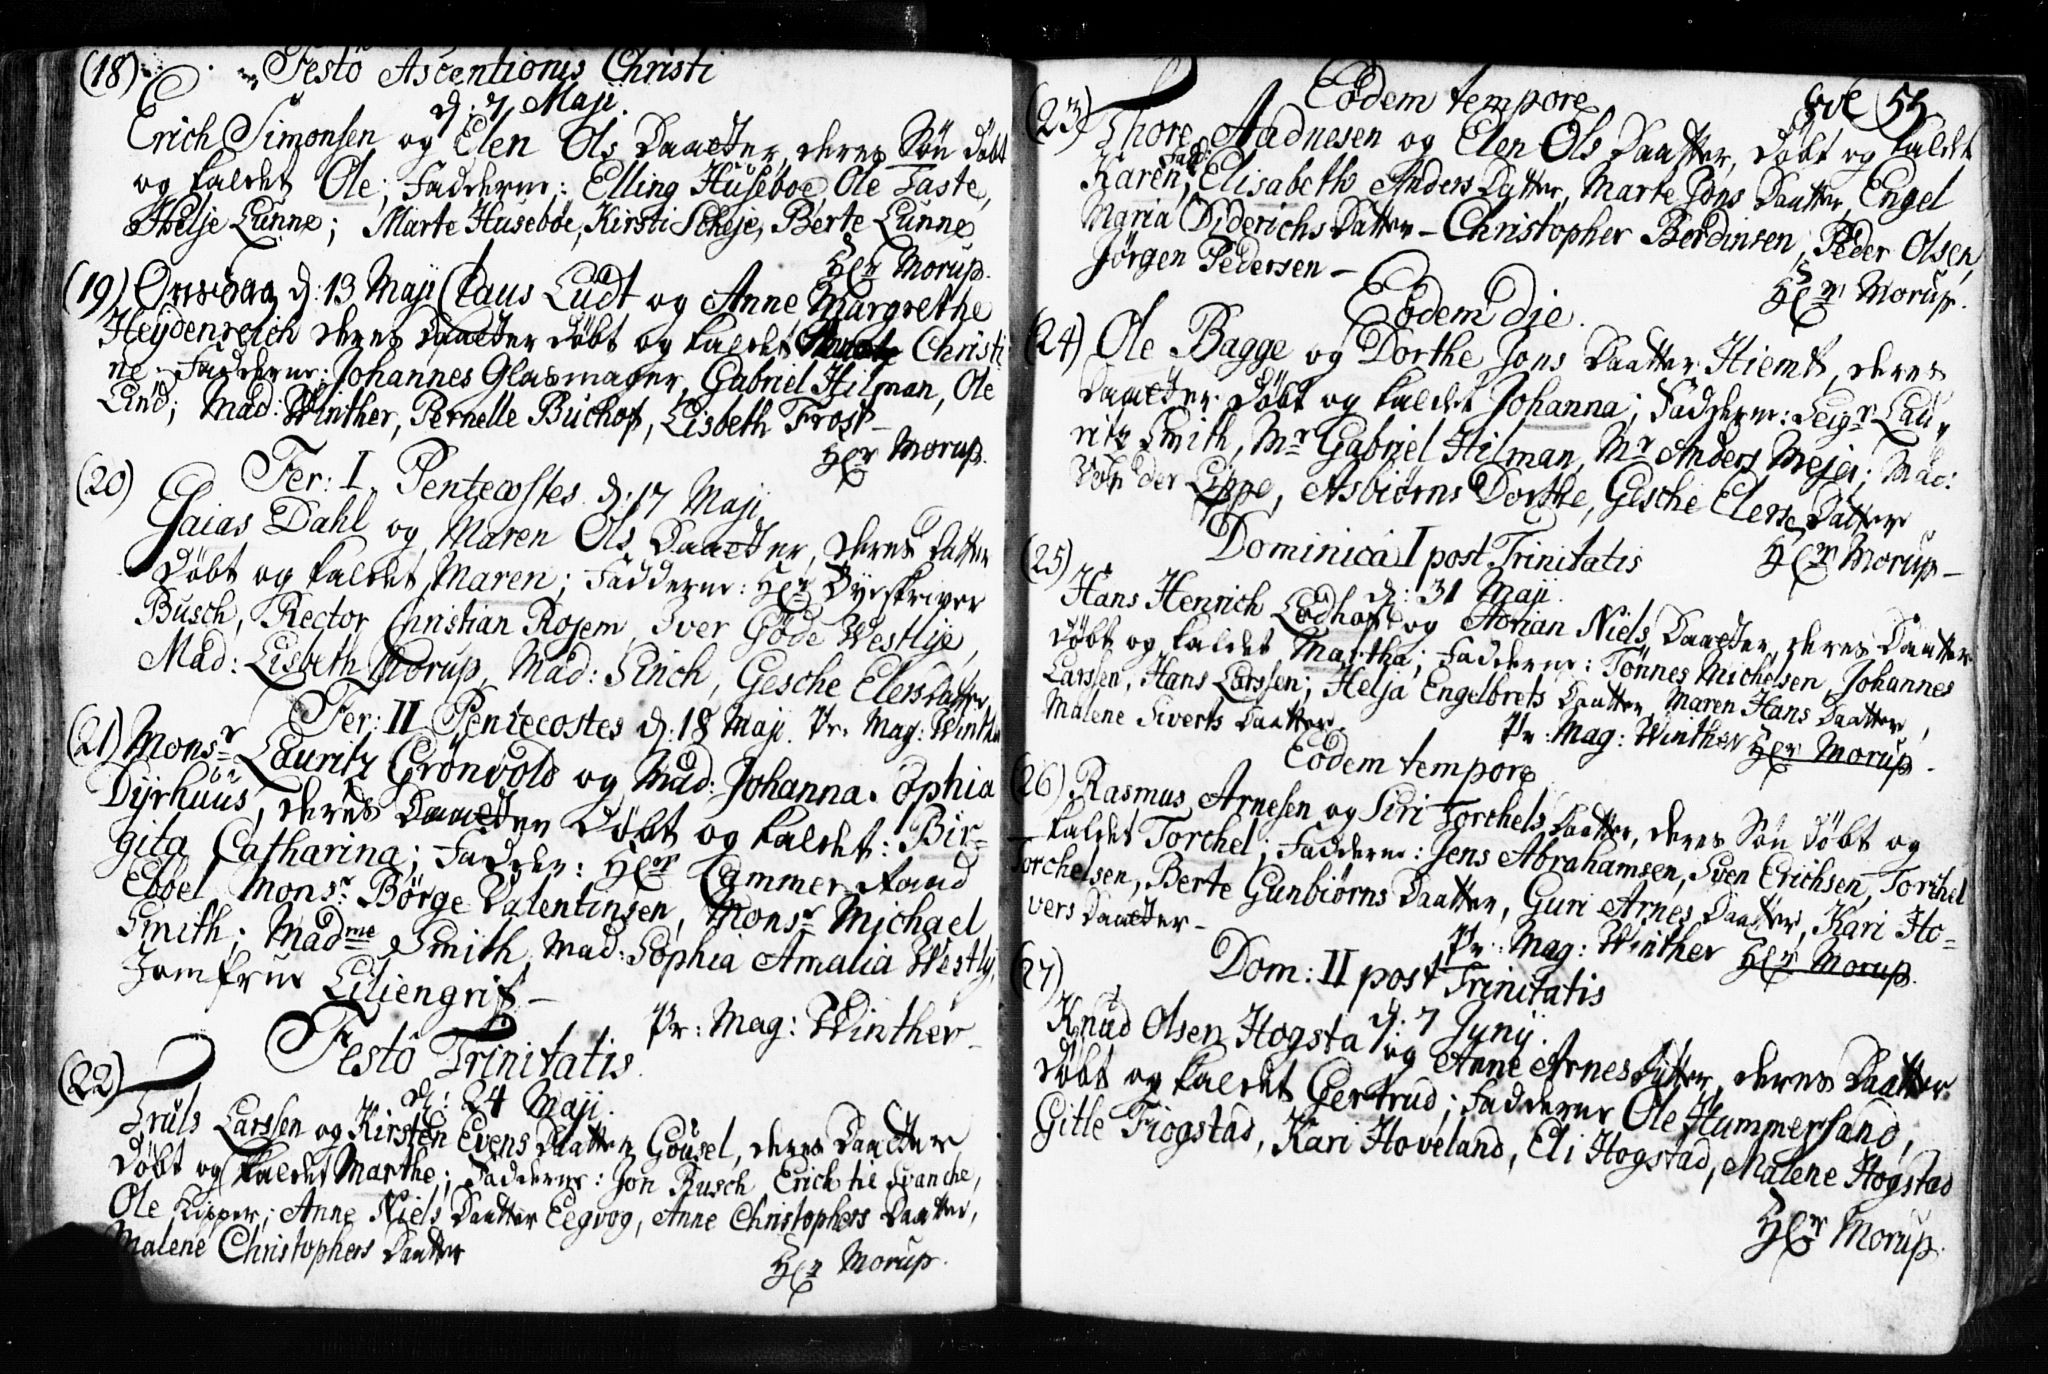 (18) Festo Ascentionis Christi
d: 7 Maji
Erich Simonsen og Elen Ols Daatter, deres Søn Døbt
og kaldet Ole; Fadderne: Elling Husebøe, Ole Taste,
Helje Lunne; Marte Husebøe, Kirsti Scheje, Berte Lunne
Hr Morup.
(19) Onsdag d: 13 Maji Claus Ludt og Anne Margrethe
Heydenreich deres Daatter Døbt og kaldet Christi
ne. Fadderne: Johannes Glasmager, Gabriel Hilman, Ole
Lind; Mad: Winther, Pernelle Buchof, Lisbeth Frost-
Hr Morup.
(20) Fer: I. Pentecostes d: 17 Maji
Esaias Dahl og Maren Ols Daatter, deres Datter
Døbt og kaldet Maren; Fadderne: Hr Byeskriver
Busch, Rector Christian Rosem, Iver Gøde Westlye,
Mad: Lisbeth Morup, Mad: Finch, Gesche Elers Datter
Fer: II Pentecostes d: 18 Maji. Pr. Mag: Winther
(21) Monsr Lauritz Grønvold og Mad: Johanna Sophia
Dyrhuus, deres Daatter Døbt og kaldet: Bir-
gita Catharina; Fadder: Hr Cammer Raad
Ebbel Monsr Børge Valentinsen, Monsr Michael
Smith; Madme Smith, Mad: Sophia Amalia Westly,
Jomfrue Liliengrif-
Pr: Mag: Winther-
Festo Trinitatis.
(22) d: 24 Maji.
Truls Larssen og Kirsten Evens Daatter Gousel, deres Daatter
Døbt og kaldet Marthe; Fadderne: Jon Rusch Erich tie Svanche,
Ole Kipper; Anne Niels Daatter Eegvog, Anne Christophers Daatter,
Malene Christophers Daatter
Hr Morup.
55
Eodem tempore
(23) Thore Aadnesen og Elen Ols Daatter, Døbt og kaldet
Karen, Fadd: Elisabeth Anders Datter, Marte Jons Daatter, Engel
Maria Diderichs Datter - Christopher Berdinsen, Peder Olsen,
Jørgen Pedersen -
Hr Morup.
Eodem die.
(24) Ole Bagge og Dorthe Jons Daatter Hiemt, deres
Daatter Døbt og kaldet Johanna; Fadderne: Seigr Lau-
ritz Smith, Mr Gabriel Hilman, Mr Anders Mejer; Mad:
Von der Lippe, Asbiørns Dorthe, Gesche Elerse Datter
Hr Morup-
Dominica I post Trinitatis
(25) d: 31 Maji.
Hans Henrich Lødhof og Adrian Niels Daatter, deres Daatter
Døbt og kaldet Martha; Fadderne: Tønnes Michelsen, Johannes
Larssen, Hans Larssen; Helja Engelbrets Daatter, Maren Hans Daatter,
Malene Siverts Daatter.
Pr: Mag: Winther Hr Morup.
Eodem tempore
(26) Rasmus Arnesen og Siri Torchels Daatter, deres Søn Døbt og
kaldet Torchel; Fadderne: Jens Abrahamsen, Sven Erichsen, Torchel
Torchelsen, Berte Gunbiørns Daatter, Guri Arnes Daatter, Kari Ho-
vers Daatter -
Pr: Mag: Winther Hr Morup.
(27) Dom: II post Trinitatis
d: 7 Junij.
Knud Olsen Hogsta og Anne Arnes Datter, deres Daatter
Døbt og kaldet Gertrud; Fadderne Ole Hummersand,
Gitle Tiøgstad, Kari Hoveland, Eli Hogstad, Malene Hogstad
Hr Morup.